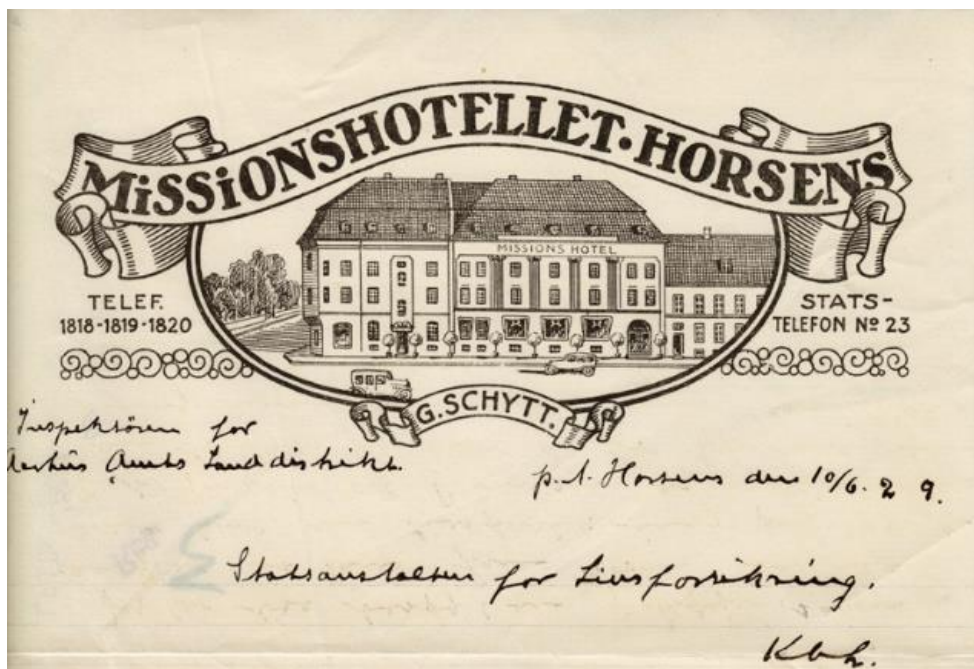 MiSSiONSHOTELLET·HORSENS
MISSIONS HOTEL
TELEF.
1818-1819-1820
STATS-
TELEFON Nº 23
G. SCHYTT.
Inspektören for
Aarhus Amts Landdistrikt.
p.t. Horsens den 10/6. 29.
Statsanstalten for Livsforsikring.
Kbh.